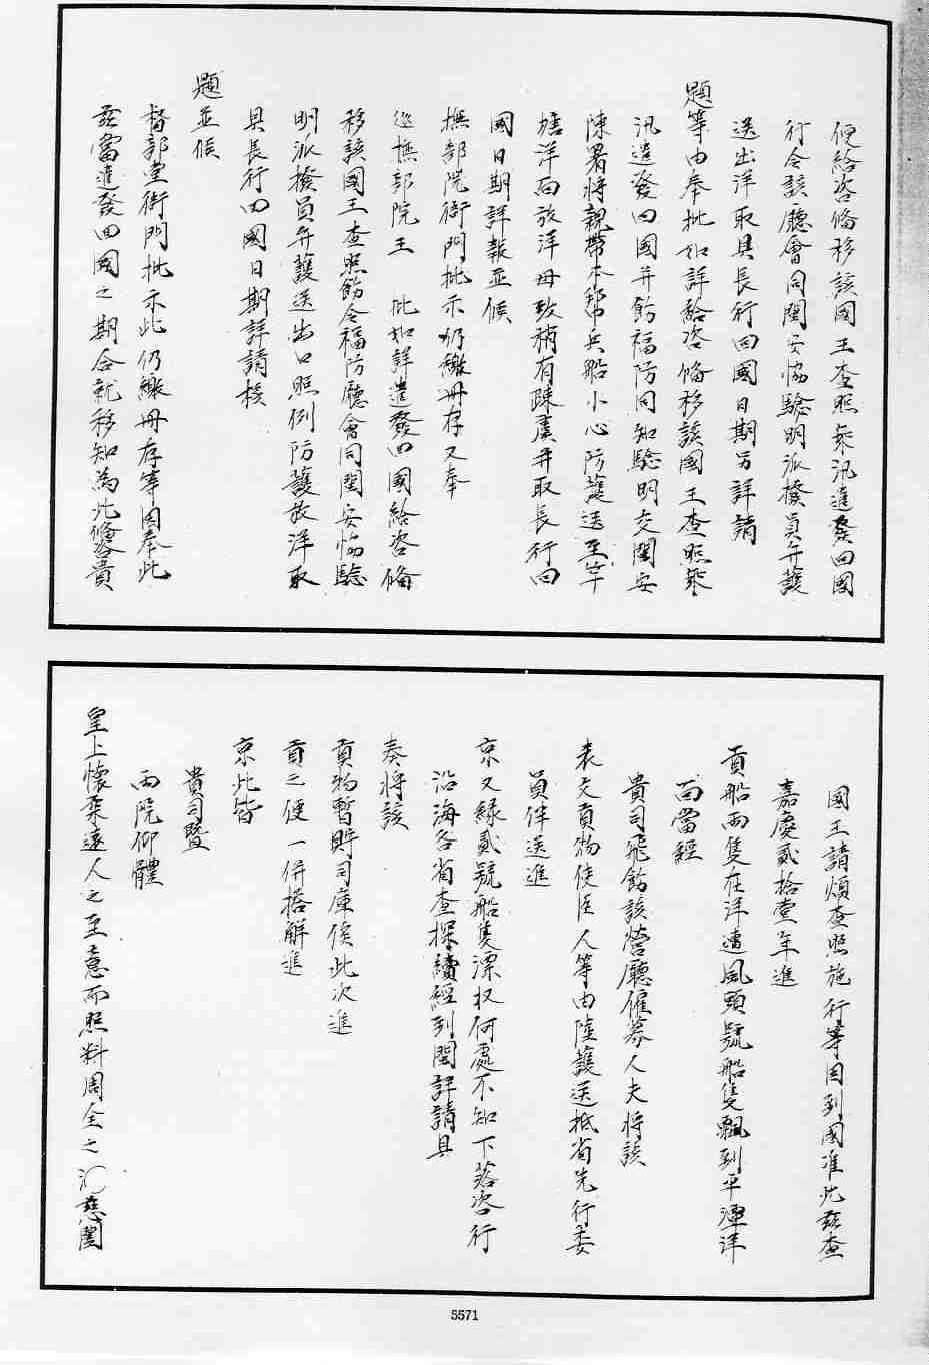 便給咨備移該國王查照乘汛遣發回國
行令該廳會同閩安協驗明派撥員弁護
送出洋取具長行回國日期另詳請
題等由奉批如詳給咨備移該國王查照乘
汛遣發回國并飭福防同知驗明交閩安
陳署將親帶本幇兵船小心防護送至竿
塘洋面放洋毋致稍有疎虞并取長行回
國日期詳報並候
撫部院衙門批示仍繳冊存又奉
巡撫部院王 批如詳遣發回國給咨備
移該國王查照飭令福防廳會同閩安協驗
明派撥員弁護送出口照例防護放洋取
具長行回國日期詳請核
題並候
督部堂衙門批示此仍繳冊存等因奉此
茲當遣發回國之期合就移知為此備咨貴
國王請煩查照施行等因到國准此茲查
嘉慶貳拾壹年進
貢船兩隻在洋遭風頭號船隻飄到平潭洋
面當經
貴司飛飭該營廳僱募人夫將該
表文貢物使臣人等由陸護送抵省先行委
員伴送進
京又緣貳號船隻漂收何處不知下落咨行
沿海各省查探續經到閩詳請具
奏將該
貢物暫貯司庫俟此次進
貢之便一併搭解進
京此皆
貴司暨
兩院仰體
皇上懷柔遠人之至意而照料周全之 慈閣
5571